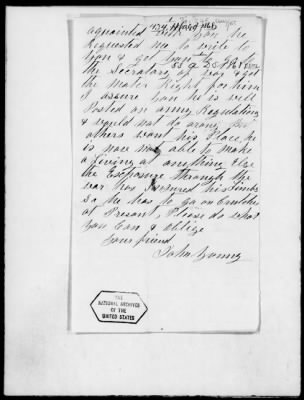 aquainted with you he
Requested me to write to
you & get
the Secretary of war & get
the mater Right for him
I assure you he is well
Posted on army Regulations
& would not do wrong
others want his Place he
is now not able to make
a living at anything Else
the Exsposure through the
war has Injured his limbs
so he has to go on crutches
at Present, Please do what
you can & oblige
your friend
John Young
THE
NATIONAL ARCHIVES
OF THE
UNITED STATES